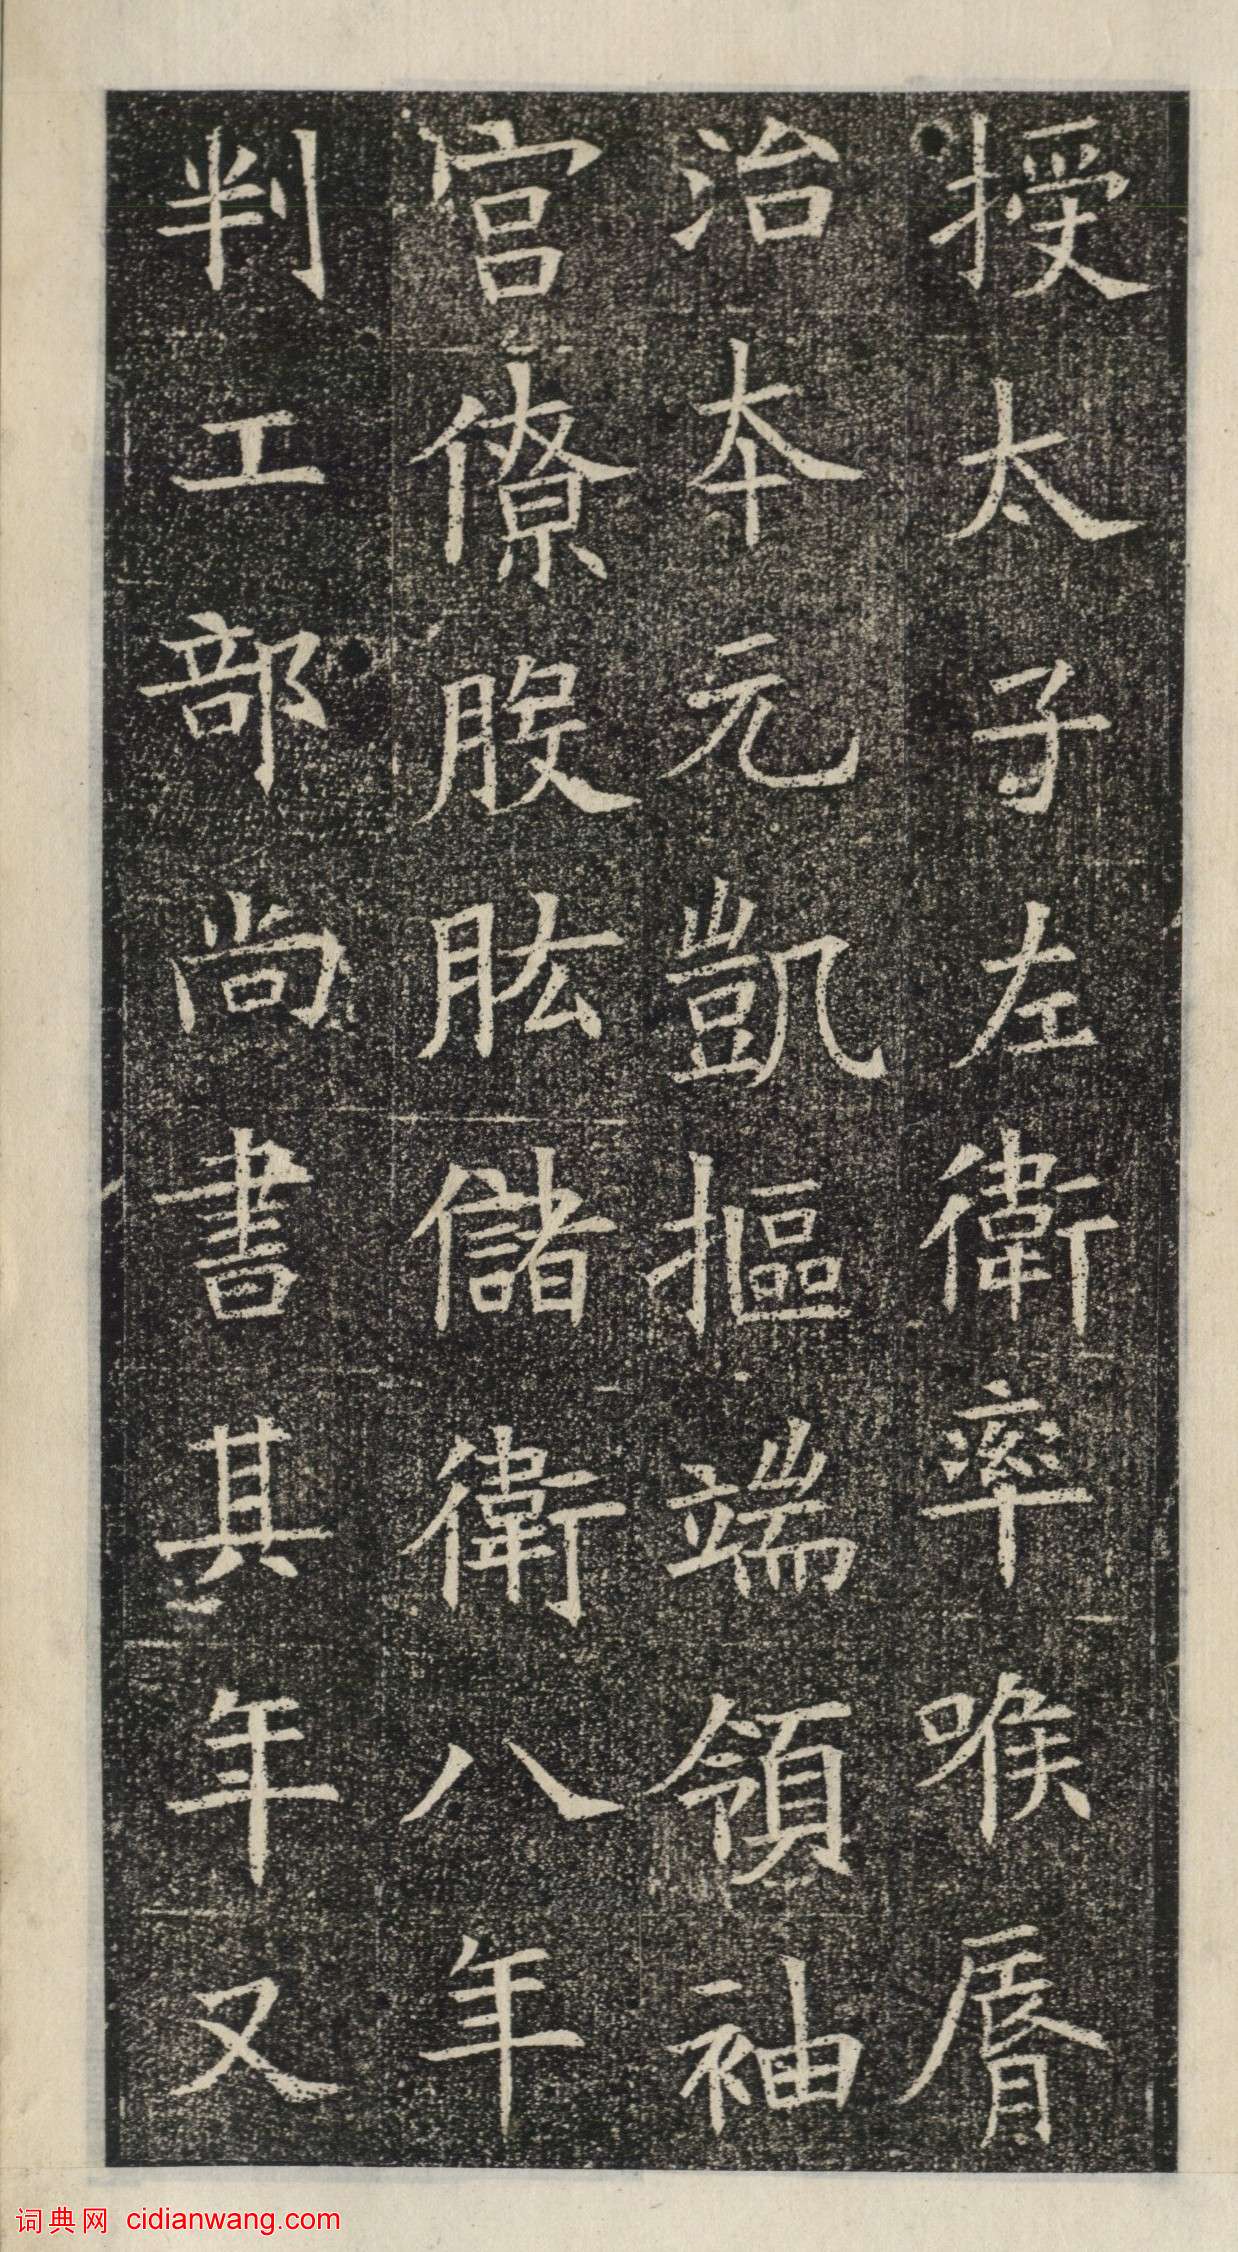 授太子左衛率喉脣
治本元凱摳端領袖
宫僚股肱儲衛八年
判工部尚書其年又
词典网 cidianwang.com